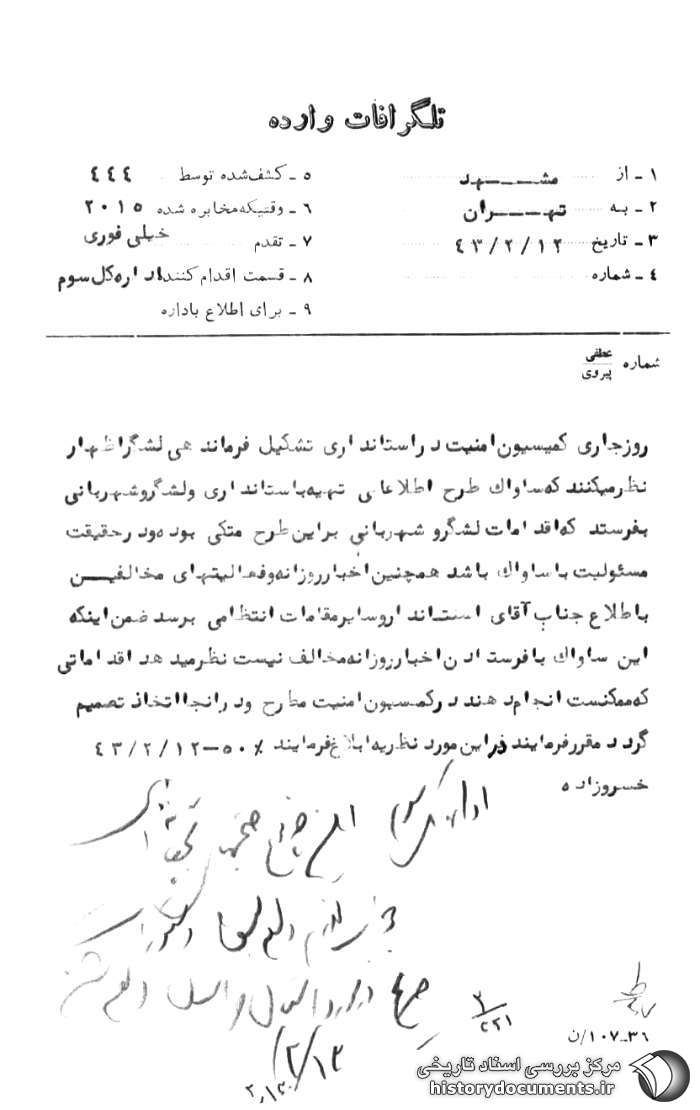 تلگرافات وارده
۱ - از مشهد
۲ - به تهران
۳ - تاریخ ۴۳/۲/۱۲
۴ - شماره
۵ - کشف‌شده توسط ۴۴۴
۶ - وقتیکه مخابره شده ۲۰۱۵
۷ - تقدم خیلی فوری
۸ - قسمت اقدام کننده اداره کل سوم
۹ - برای اطلاع باداره
شماره عطفی پیروی
روزجاری کمیسیون امنیت در استانداری تشکیل فرماندهی لشگر اظهار
نظر میکنند که ساواك طرح اطلاعاتی تهیه باستانداری و لشگر و شهربانی
بفرستد که اقدامات لشگر و شهربانی بر این طرح متکی بوده و در حقیقت
مسئولیت با ساواك باشد همچنین اخبار روزانه و فعالیتهای مخالفین
باطلاع جناب آقای استاندار و سایر مقامات انتظامی برسد ضمن اینکه
این ساواك با فرستادن اخبار روزانه مخالف نیست نظر میدهد اقداماتی
که ممکنست انجام دهند در کمسیون امنیت مطرح و در انجا اتخاذ تصمیم
گردد مقرر فرمایند در این مورد نظریه ابلاغ فرمایند ٪ ۵۰-۴۳/۲/۱۲
خسروزاده
اداره کل سوم
۳
۲۲۱
۳۶-۱۰۷/ن
۲/۱۳
مرکز بررسی اسناد تاریخی
historydocuments.ir